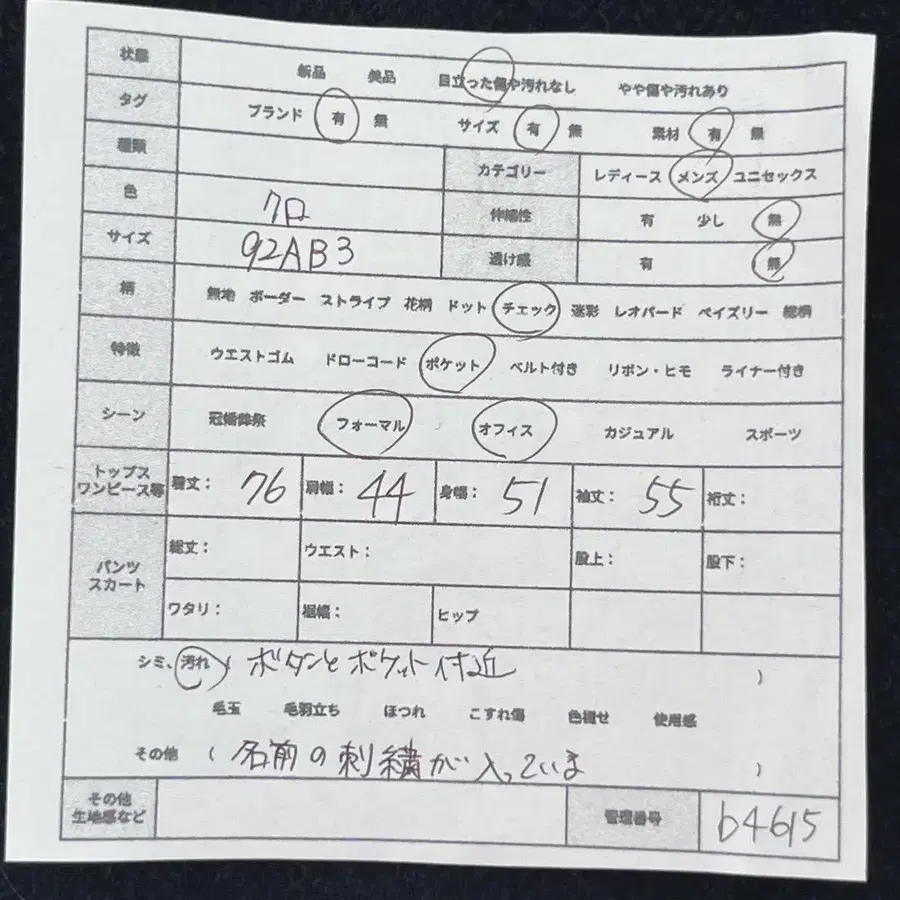 状態 新品 美品 目立った傷や汚れなし やや傷や汚れあり
タグ ブランド 有 無 サイズ 有 無 素材 有 無
種類 カテゴリー レディース メンズ ユニセックス
色 クロ 伸縮性 有 少し 無
サイズ 92AB3 透け感 有 無
柄 無地 ボーダー ストライプ 花柄 ドット チェック 迷彩 レオパード ペイズリー 総柄
特徴 ウエストゴム ドローコード ポケット ベルト付き リボン・ヒモ ライナー付き
シーン 冠婚葬祭 フォーマル オフィス カジュアル スポーツ
トップス
ワンピース等 着丈: 76 肩幅: 44 身幅: 51 袖丈: 55 裄丈:
パンツ
スカート 総丈: ウエスト: 股上: 股下:
ワタリ: 裾幅: ヒップ
シミ、汚れ ( ボタンとポケット付近 )
毛玉 毛羽立ち ほつれ こすれ傷 色褪せ 使用感
その他 ( 名前の刺繍が入っていま )
その他
生地感など 管理番号 b4615